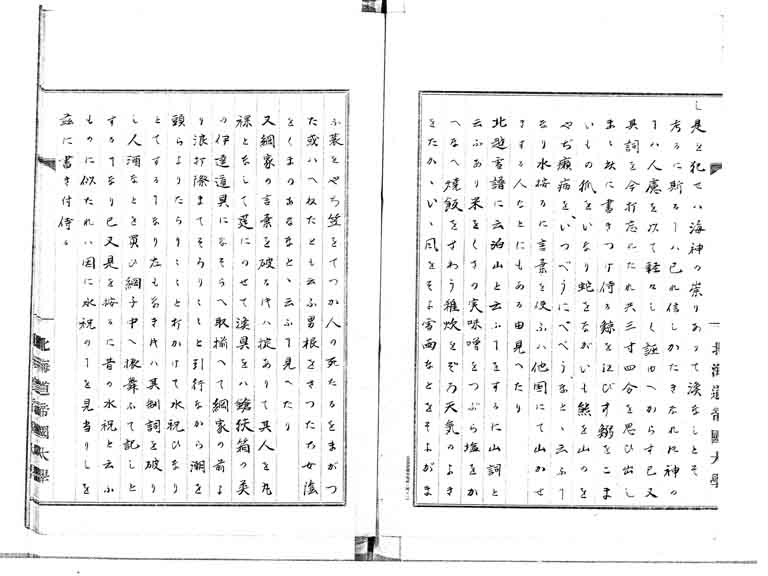 し是を犯せハ海神の祟りありて漁なしとそ
考るに斯るハ己れ信しかたきなれ共神の
ハ人慮を以て軽々しく証すへからす己又
其詞を今打忘にたれ共三寸四分を思ひ出し
まゝ茲に書きつけ侍る鯨を江びす鰯をこま
いもの狐をいなり蛇をながいも熊を山のを
やぢ癩病をいつべうにべべうなとゝ云ふ
なり水揚るに言葉を使ふハ他国にて山かせ
きする人なとにもある由見へたり
北遊言語に云泊山と云ふをするに山詞と
云ふあり米をくさの実味噌をつぶら塩をか
へなへ焼飯をざわう雑炊をぞろ天気のよき
をたかゝいゝ風をそよ雪雨なとをそよがま
ふ蓑をやち笠をてつか人の死たるをまがつ
た或ハへねたとも云ふ男根をきつたち女陰
をくまのあななとゝ云ふて見へたり
又網家の言葉を破る时ハ掟ありて其人を丸
裸となして筵にのせて漁具をハ鎗挟箱の美
の伊達道具になそらへ取揃へて網家の前よ
り浪打際まてそろりそろりと引行なから潮を
頭らよりたらりたらりと打かけて水祝ひなり
とてするなり左もなき时ハ其制詞を破り
し人酒なとを買ひ網子中へ振舞ふて記しと
するなり己又見を按るに昔の水祝と云ふ
ものに似たれハ因に水祝のを見当りしを
茲に書き付侍る
北海道帝國大學
北海道帝國大學